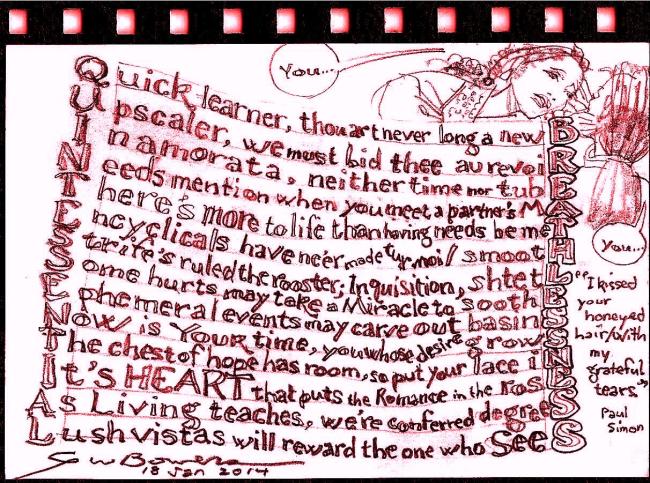 You...
Quick learner, thou art never long a newB
Upscaler, we must bid thee au revoiR
Inamorata, neither time nor tubE
Needs mention when you meet a partner's MA
There's more to life than having needs be meT
Encyclicals have ne'er made turmoil smootH
Strife's ruled the rooster; Inquisition, shtetL
Some hurts may take a Miracle to soothE
Ephemeral events may carve out basinS
NOW is Your time, you whose desire growS
The chest of hope has room, so put your lace iN
It's HEART that puts the Romance in the RosE
As Living teaches, we're conferred degreeS
Lush vistas will reward the one who SeeS
18 Jan 2014
You...
"I kissed
your
honeyed
hair/with
my
grateful
tears."
Paul
Simon